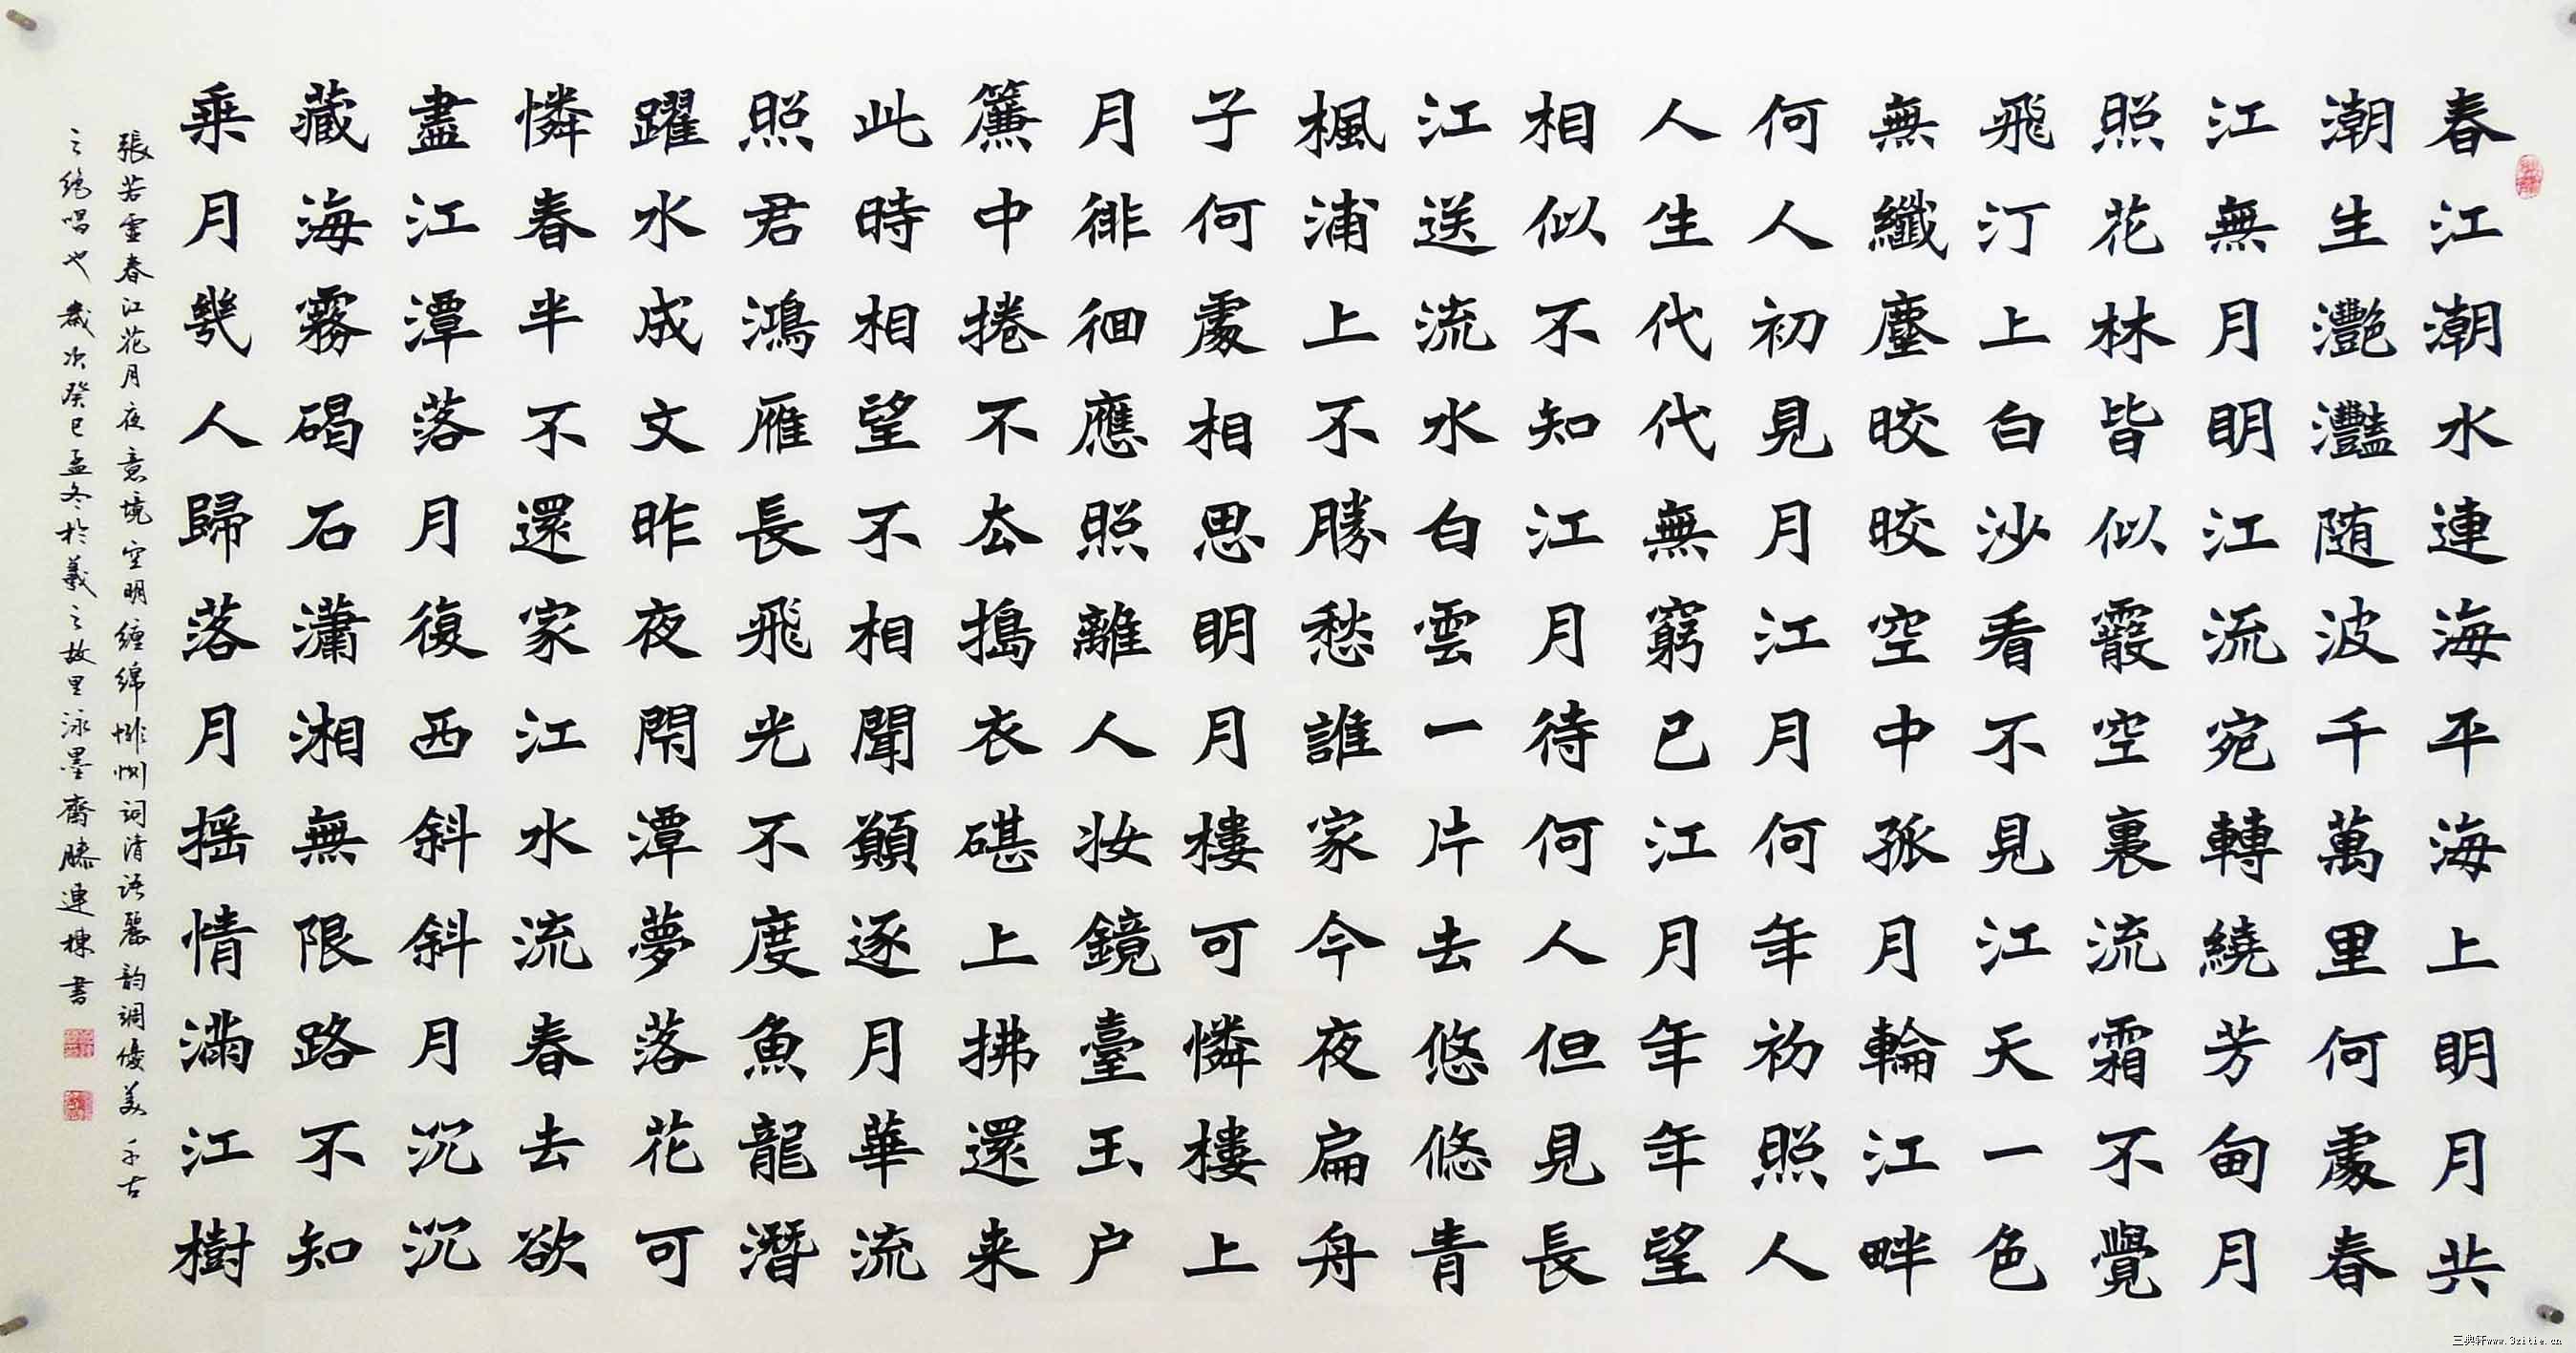 春江潮水連海平海上明月共
潮生灧灩随波千萬里何處春
江無月明江流宛轉繞芳甸月
照花林皆似霰空裏流霜不覺
飛汀上白沙看不見江天一色
無纖塵皎皎空中孤月輪江畔
何人初見月江月何年初照人
人生代代無窮已江月年年望
相似不知江月待何人但見長
江送流水白雲一片去悠悠青
楓浦上不勝愁誰家今夜扁舟
子何處相思明月樓可憐樓上
月徘徊應照離人妝鏡臺玉户
簾中捲不厺搗衣碪上拂還来
此時相望不相聞願逐月華流
照君鴻雁長飛光不度魚龍潛
躍水成文昨夜閒潭夢落花可
憐春半不還家江水流春去欲
盡江潭落月復西斜斜月沉沉
藏海霧碣石瀟湘無限路不知
乘月幾人歸落月摇情滿江樹
張若虛春江花月夜意境空明缠綿悱恻词清语麗韵调優美千古
之绝唱也歲次癸巳孟冬於羲之故里泳墨齋滕連棟書
三典轩www.3zitie.cn